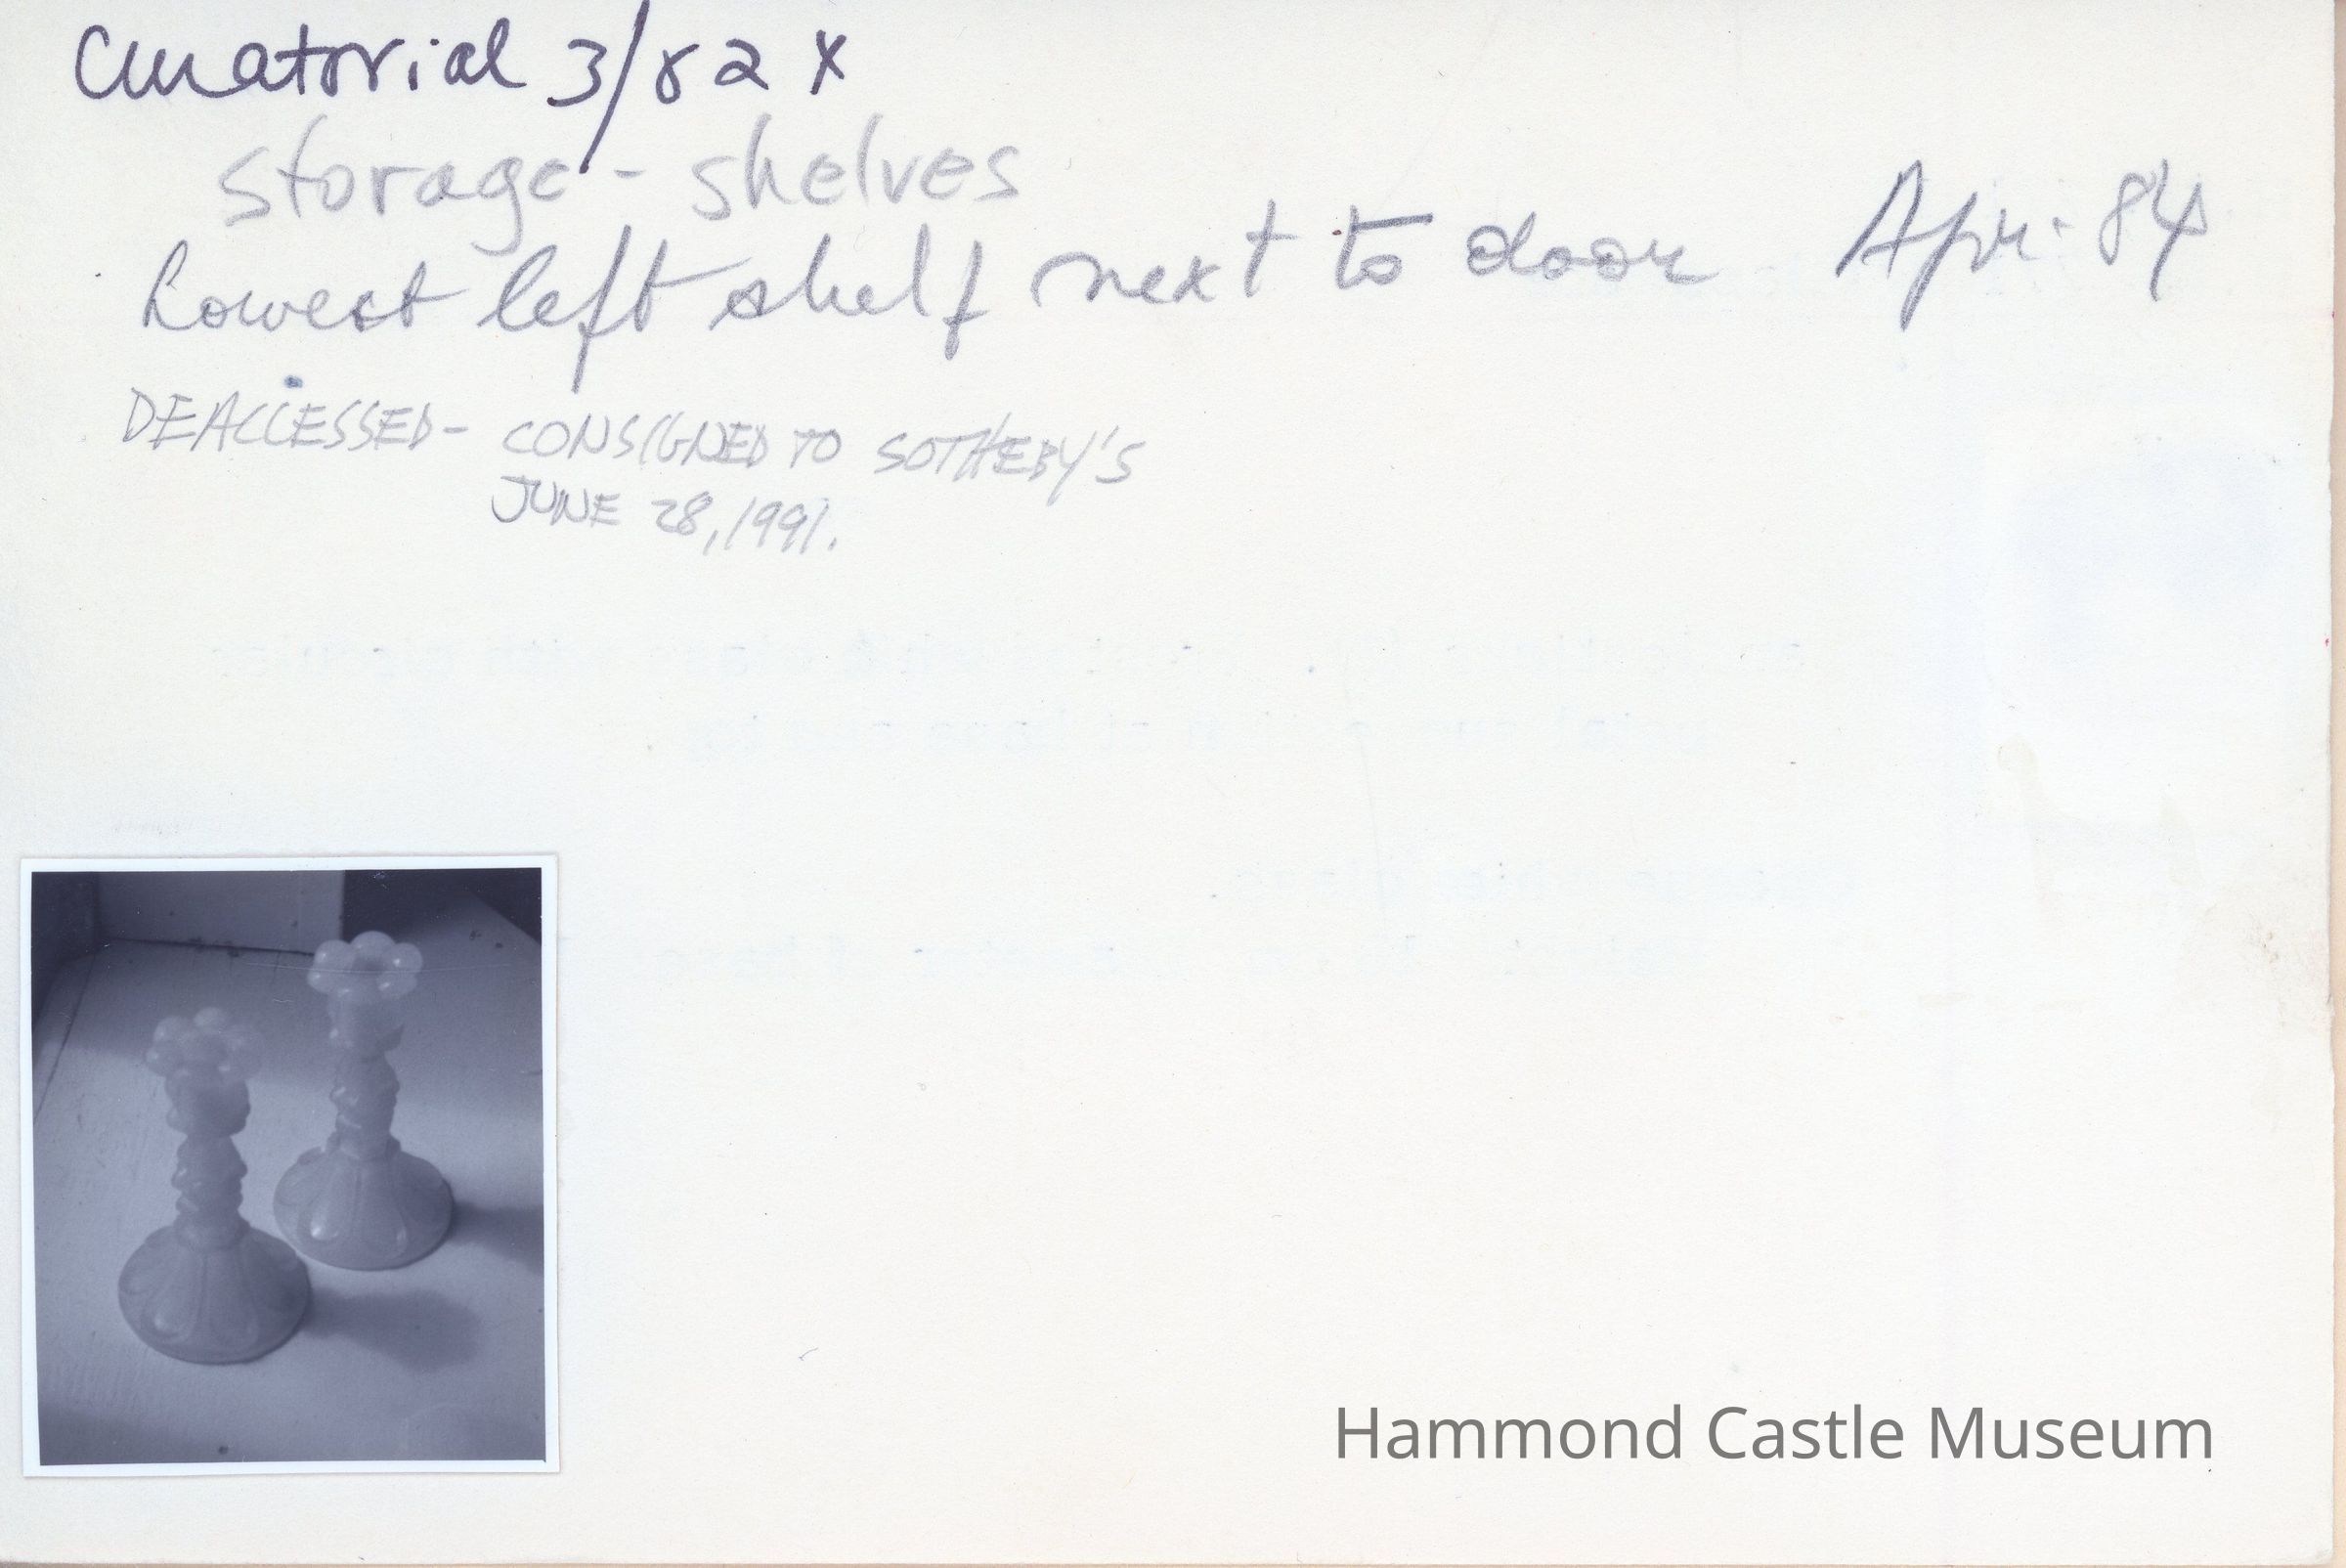 Curatorial 3/82 X
storage - shelves
Lowest left shelf next to door Apr. 84
DEACCESSED - CONSIGNED TO SOTHEBY'S
JUNE 28, 1991.
Hammond Castle Museum